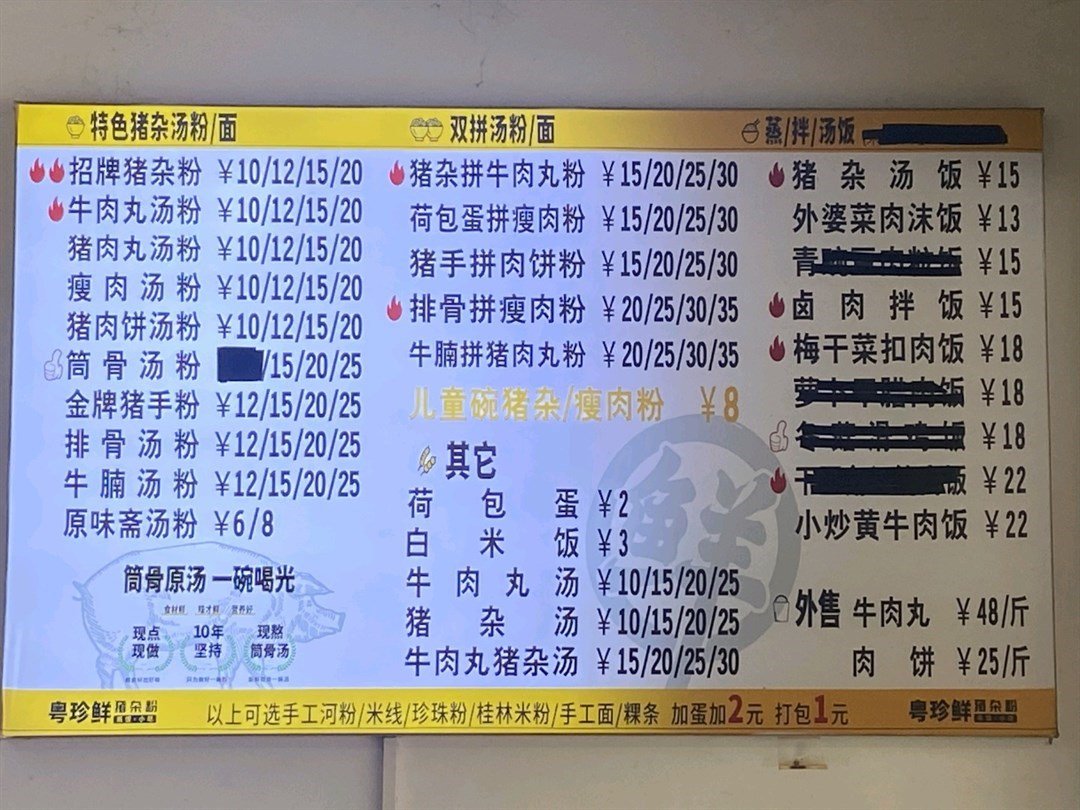 特色猪杂汤粉/面
招牌猪杂粉 ￥10/12/15/20
牛肉丸汤粉 ￥10/12/15/20
猪肉丸汤粉 ￥10/12/15/20
瘦肉汤粉 ￥10/12/15/20
猪肉饼汤粉 ￥10/12/15/20
筒骨汤粉 /15/20/25
金牌猪手粉 ￥12/15/20/25
排骨汤粉 ￥12/15/20/25
牛腩汤粉 ￥12/15/20/25
原味斋汤粉 ￥6/8
筒骨原汤 一碗喝光
食材鲜 味才鲜 营养好
现点现做
10年坚持
现熬筒骨汤
双拼汤粉/面
猪杂拼牛肉丸粉 ￥15/20/25/30
荷包蛋拼瘦肉粉 ￥15/20/25/30
猪手拼肉饼粉 ￥15/20/25/30
排骨拼瘦肉粉 ￥20/25/30/35
牛腩拼猪肉丸粉 ￥20/25/30/35
儿童碗猪杂/瘦肉粉 ￥8
其它
荷包蛋 ￥2
白米饭 ￥3
牛肉丸汤 ￥10/15/20/25
猪杂汤 ￥10/15/20/25
牛肉丸猪杂汤 ￥15/20/25/30
鲜
蒸/拌/汤饭
猪杂汤饭 ￥15
外婆菜肉沫饭 ￥13
青 饭 ￥15
卤肉拌饭 ￥15
梅干菜扣肉饭 ￥18
饭 ￥18
饭 ￥18
干 饭 ￥22
小炒黄牛肉饭 ￥22
外售 牛肉丸 ￥48/斤
肉饼 ￥25/斤
粤珍鲜 猪杂粉
以上可选手工河粉/米线/珍珠粉/桂林米粉/手工面/粿条 加蛋加2元 打包1元
粤珍鲜 猪杂粉